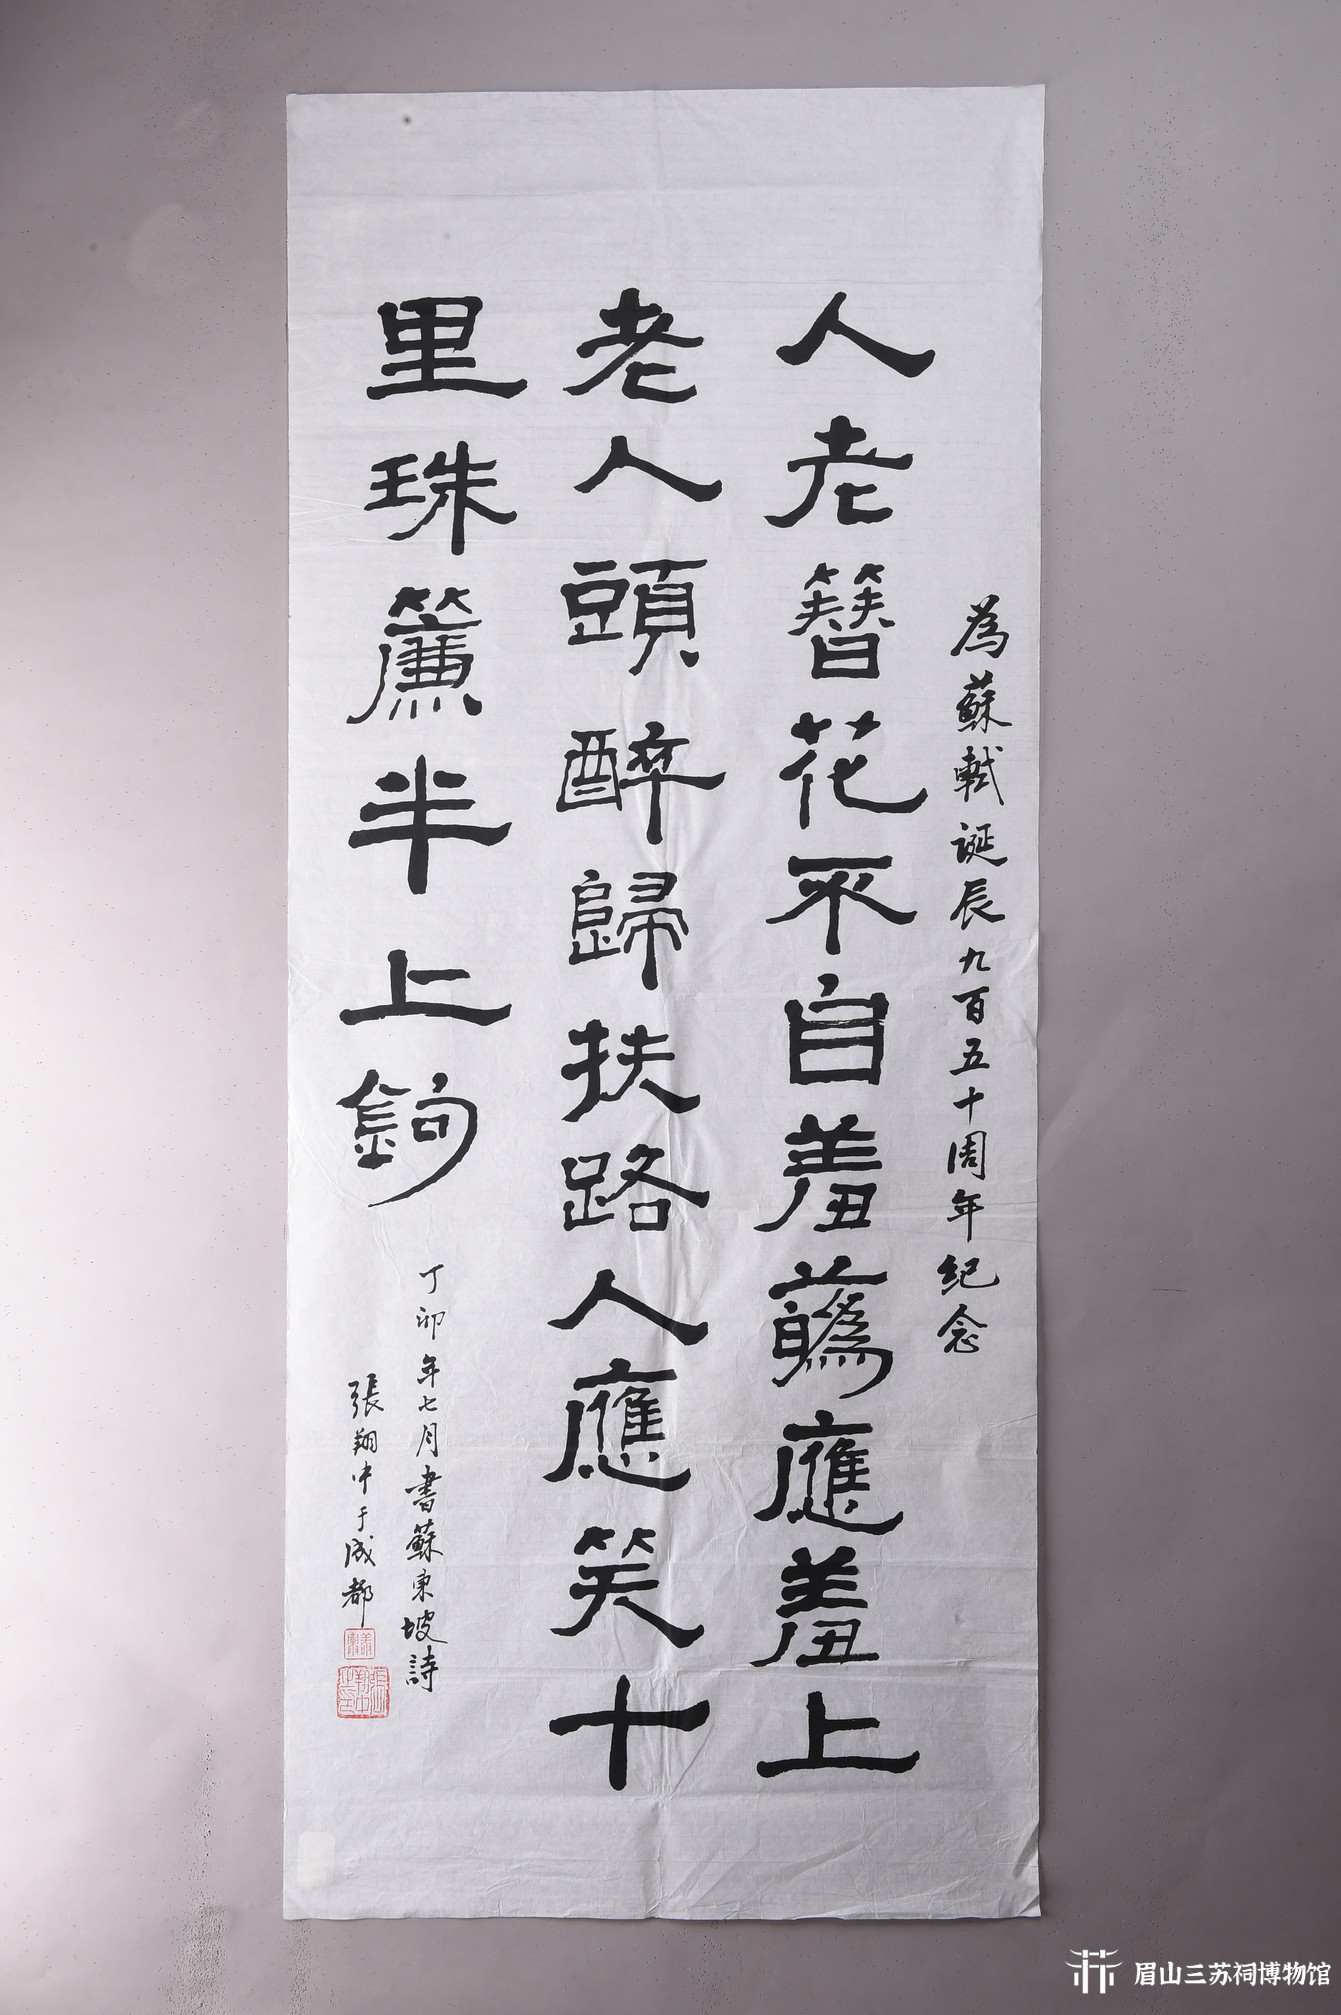 為蘇軾誕辰九百五十周年紀念
人老簪花不自羞蘤應羞上
老人頭醉歸扶路人應笑十
里珠簾半上鉤
丁卯年七月書蘇東坡詩
張翔中于成都
眉山三苏祠博物馆